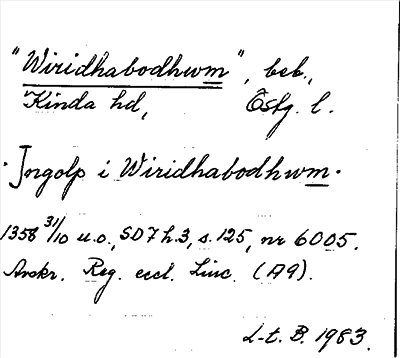 "Wiridhabodhwm", beb.,
Kinda hd, Östg. l.
Ingolp i Wiridhabodhwm.
1358 31/10 u.o., SD7 h.3, s.125, nr 6005.
Avskr. Reg. eccl. Linc. (A9).
L-t. B. 1983.